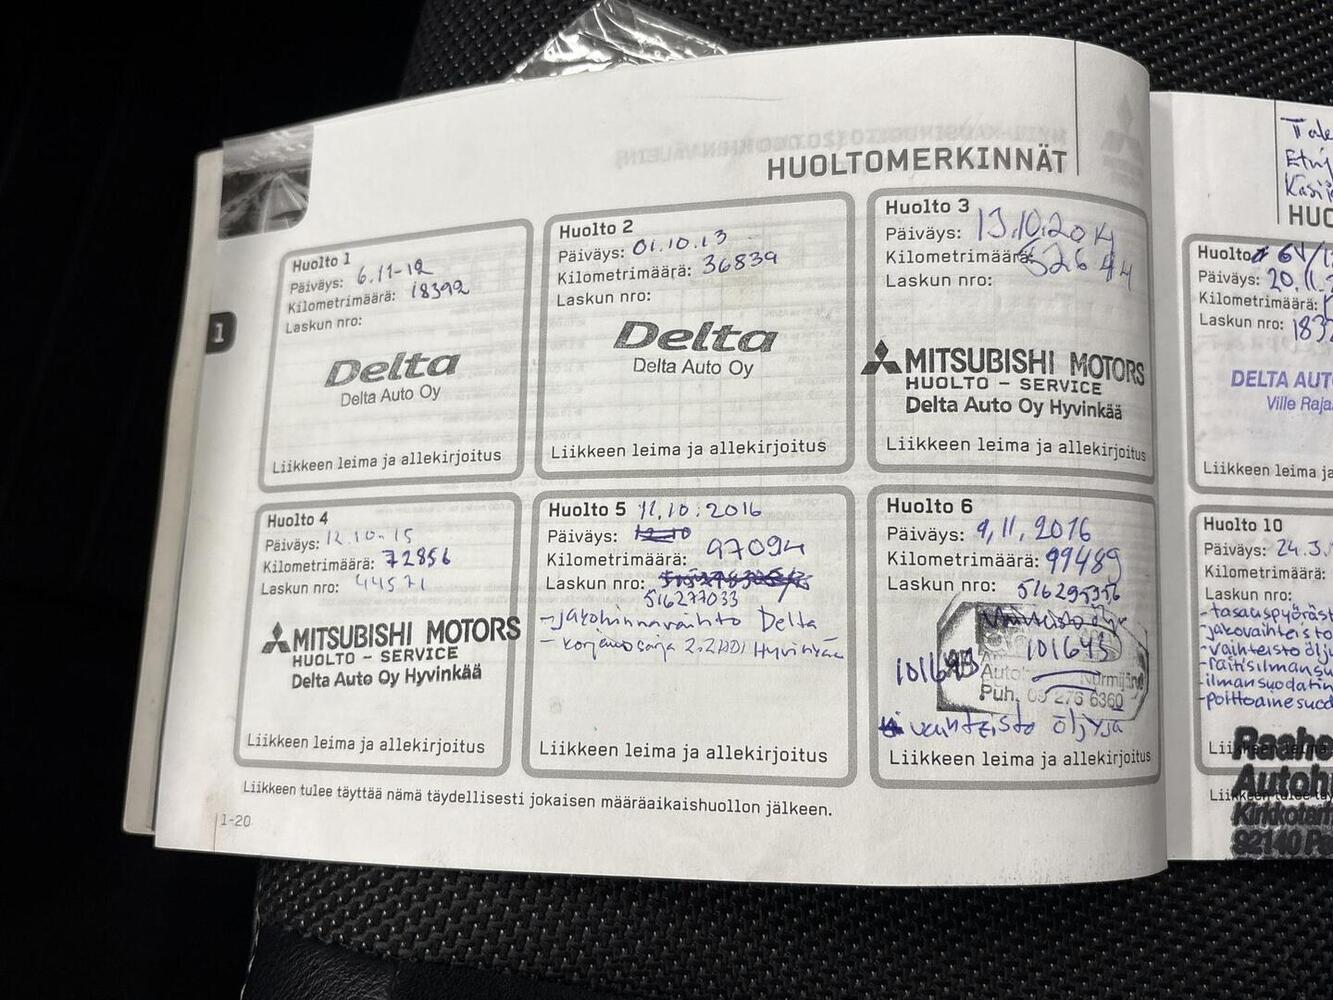 HUOLTOMERKINNÄT
1
Huolto 1
Päiväys: 6.11-12
Kilometrimäärä: 18392
Laskun nro:
Delta
Delta Auto Oy
Liikkeen leima ja allekirjoitus
Huolto 2
Päiväys: 01.10.13
Kilometrimäärä: 36839
Laskun nro:
Delta
Delta Auto Oy
Liikkeen leima ja allekirjoitus
Huolto 3
Päiväys: 13.10.2014
Kilometrimäärä: 52644
Laskun nro:
MITSUBISHI MOTORS
HUOLTO - SERVICE
Delta Auto Oy Hyvinkää
Liikkeen leima ja allekirjoitus
Huolto 4
Päiväys: 12.10.15
Kilometrimäärä: 72856
Laskun nro: 44571
MITSUBISHI MOTORS
HUOLTO - SERVICE
Delta Auto Oy Hyvinkää
Liikkeen leima ja allekirjoitus
Huolto 5 11.10.2016
Päiväys: 12.10
Kilometrimäärä: 97094
Laskun nro:
516277033
-jakohinnavaihto Delta
- korjaussarja 2.2HDI Hyvinkää
Liikkeen leima ja allekirjoitus
Huolto 6
Päiväys: 9,11,2016
Kilometrimäärä: 99489
Laskun nro:
516295356
101643
101643
Nurmijärvi
Puh. 09 276 6360
vaihteisto öljyjä
Liikkeen leima ja allekirjoitus
Liikkeen tulee täyttää nämä täydellisesti jokaisen määräaikaishuollon jälkeen.
1-20
HUO
Huolto
Päiväys: 20.11.2
Kilometrimäärä:
Laskun nro: 183
DELTA AUT
Ville Raja
Liikkeen leima ja
Huolto 10
Päiväys: 24.3.
Kilometrimäärä:
Laskun nro:
-tasauspyöräst
-jakovaihteisto
-vaihteistoölj
-raitisilmansu
-ilmansuodatin
-polttoainesuod
Raahe
Autoh
92140 Pa